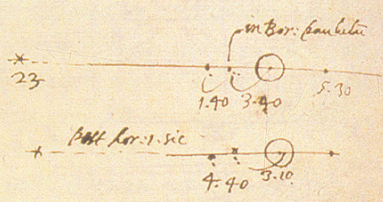 in Bor: paululū
23 1.40 3.40 5.30
post hor: 1. sic
4. 40 3.10